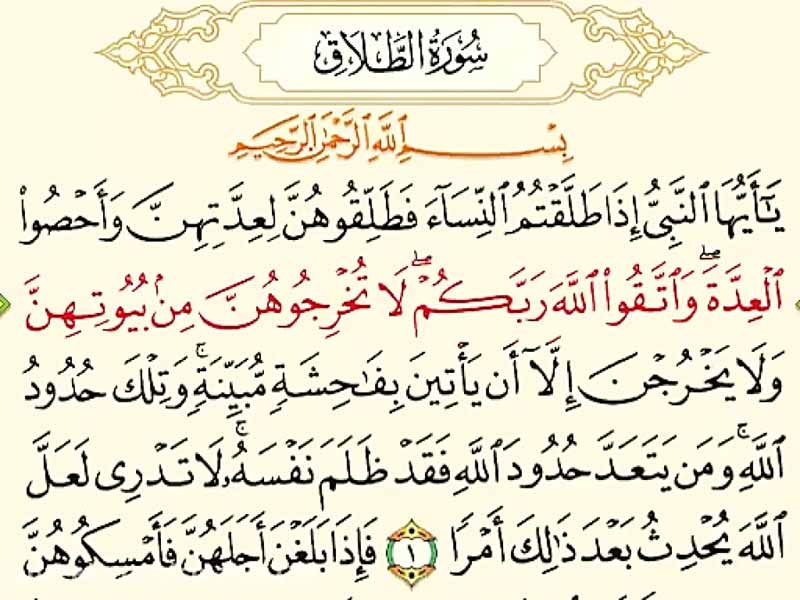 سُورَةُ الطَّلَاقِ
بِسْمِ ٱللَّهِ ٱلرَّحْمَٰنِ ٱلرَّحِيمِ
يَٰٓأَيُّهَا ٱلنَّبِىُّ إِذَا طَلَّقْتُمُ ٱلنِّسَآءَ فَطَلِّقُوهُنَّ لِعِدَّتِهِنَّ وَأَحْصُوا۟
ٱلْعِدَّةَ ۖ وَٱتَّقُوا۟ ٱللَّهَ رَبَّكُمْ ۖ لَا تُخْرِجُوهُنَّ مِنۢ بُيُوتِهِنَّ
وَلَا يَخْرُجْنَ إِلَّآ أَن يَأْتِينَ بِفَٰحِشَةٍ مُّبَيِّنَةٍ ۚ وَتِلْكَ حُدُودُ
ٱللَّهِ ۚ وَمَن يَتَعَدَّ حُدُودَ ٱللَّهِ فَقَدْ ظَلَمَ نَفْسَهُۥ ۚ لَا تَدْرِى لَعَلَّ
ٱللَّهَ يُحْدِثُ بَعْدَ ذَٰلِكَ أَمْرًا ١ فَإِذَا بَلَغْنَ أَجَلَهُنَّ فَأَمْسِكُوهُنَّ